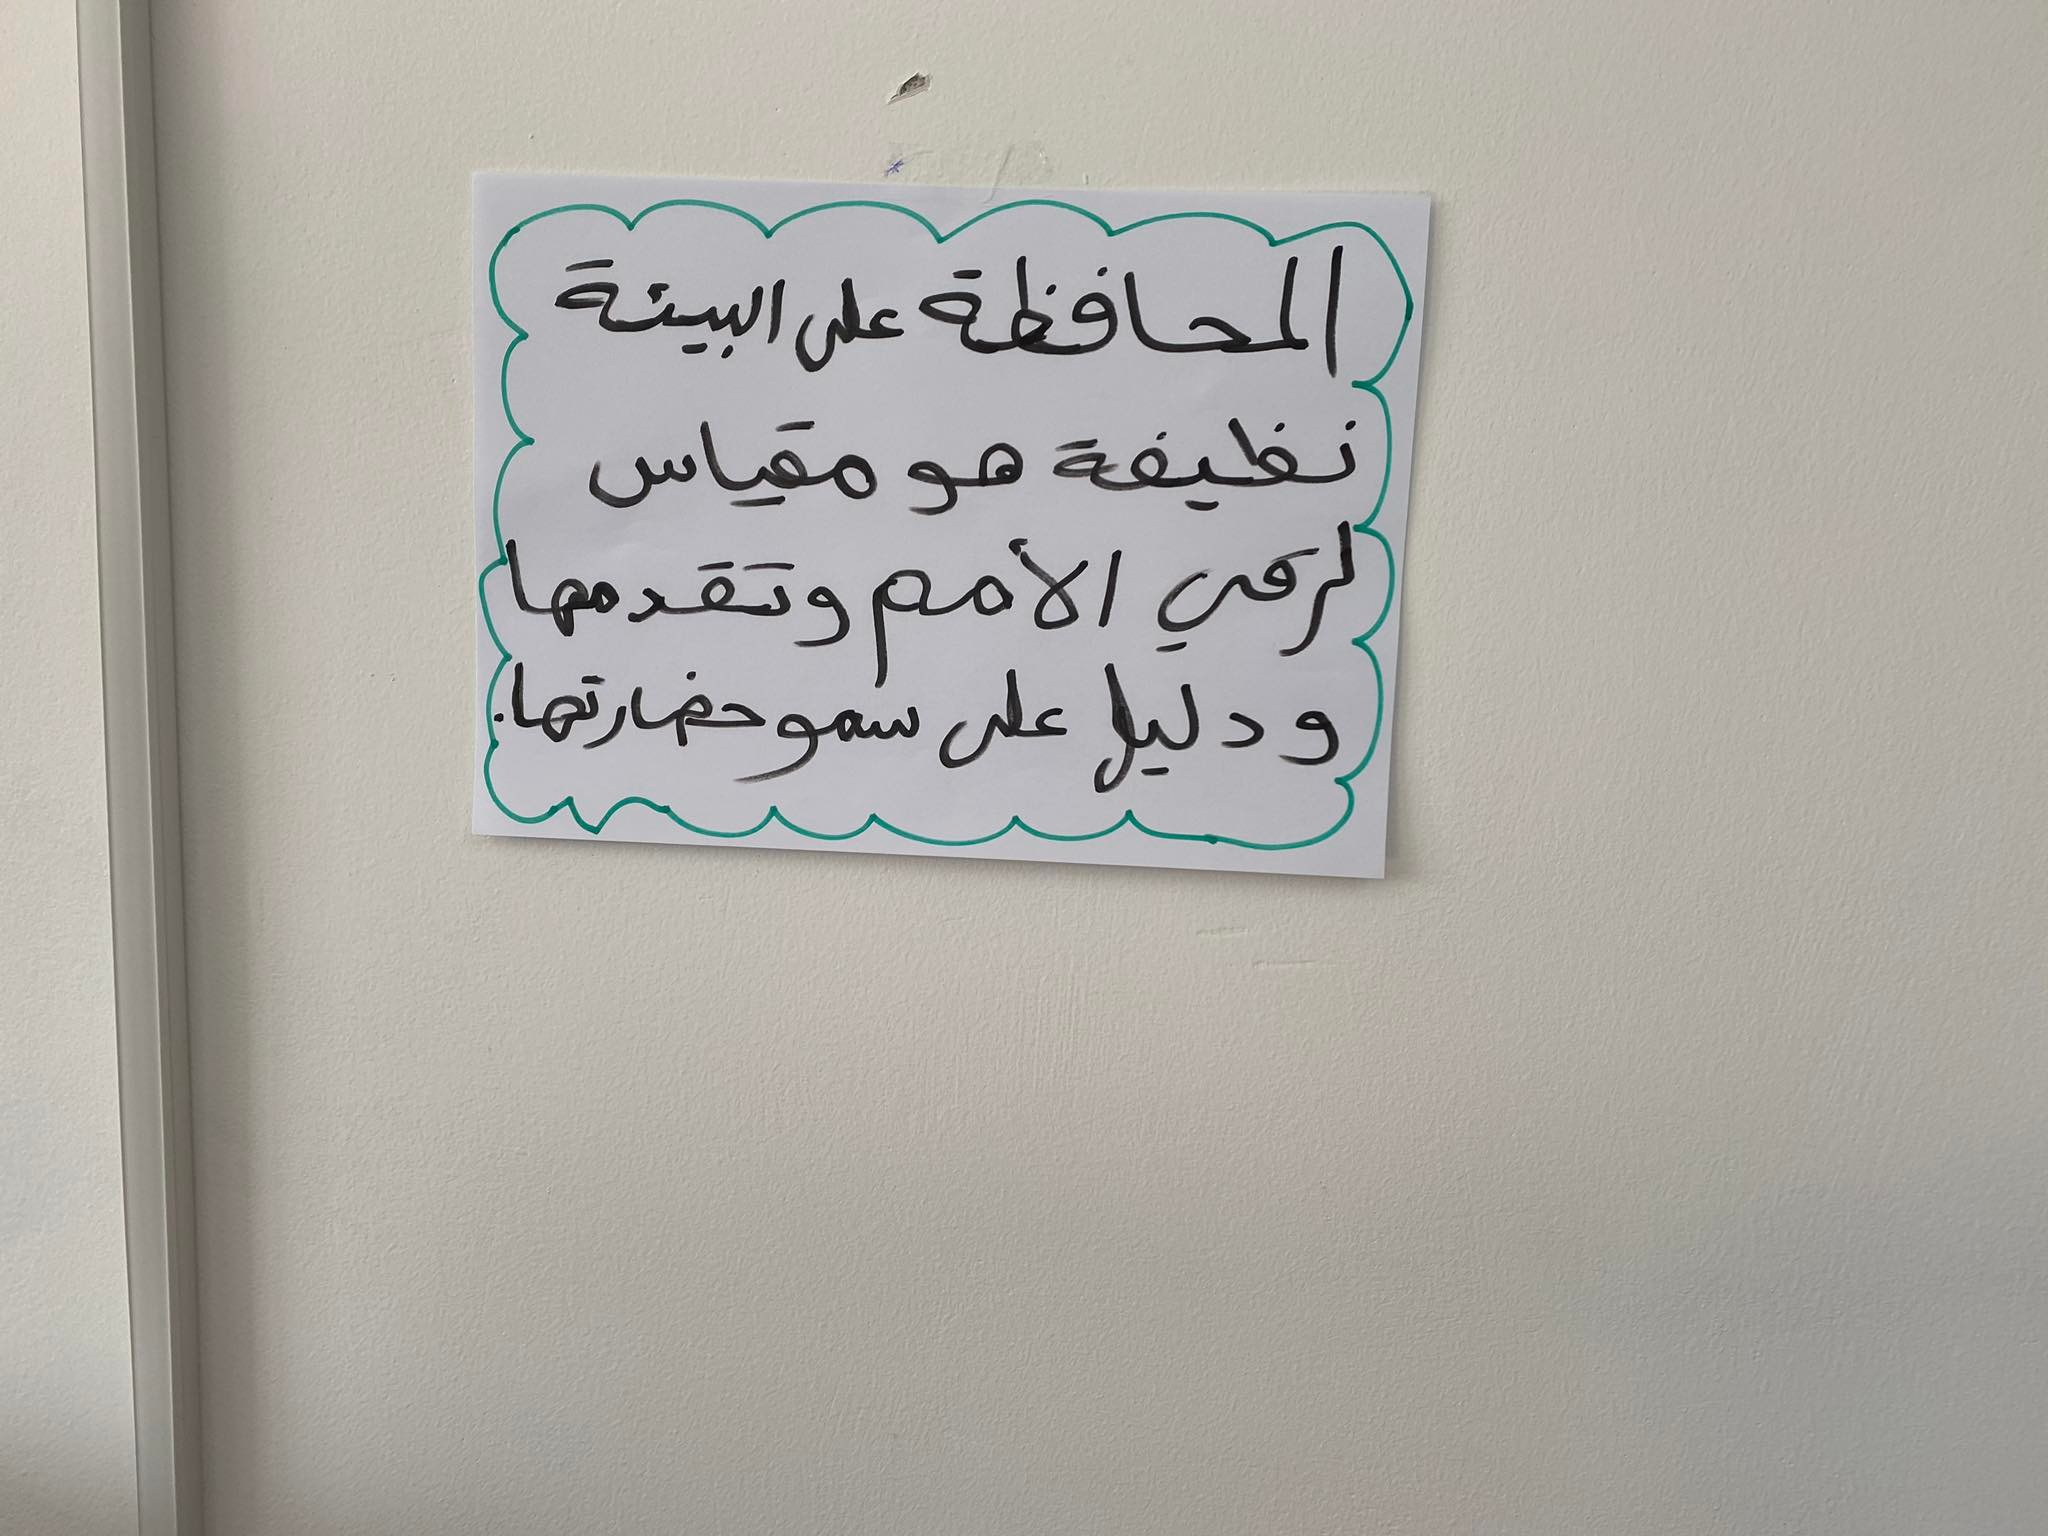 المحافظة على البيئة
نظيفة هو مقياس
لرقي الأمم وتقدمها
ودليل على سمو حضارتها.